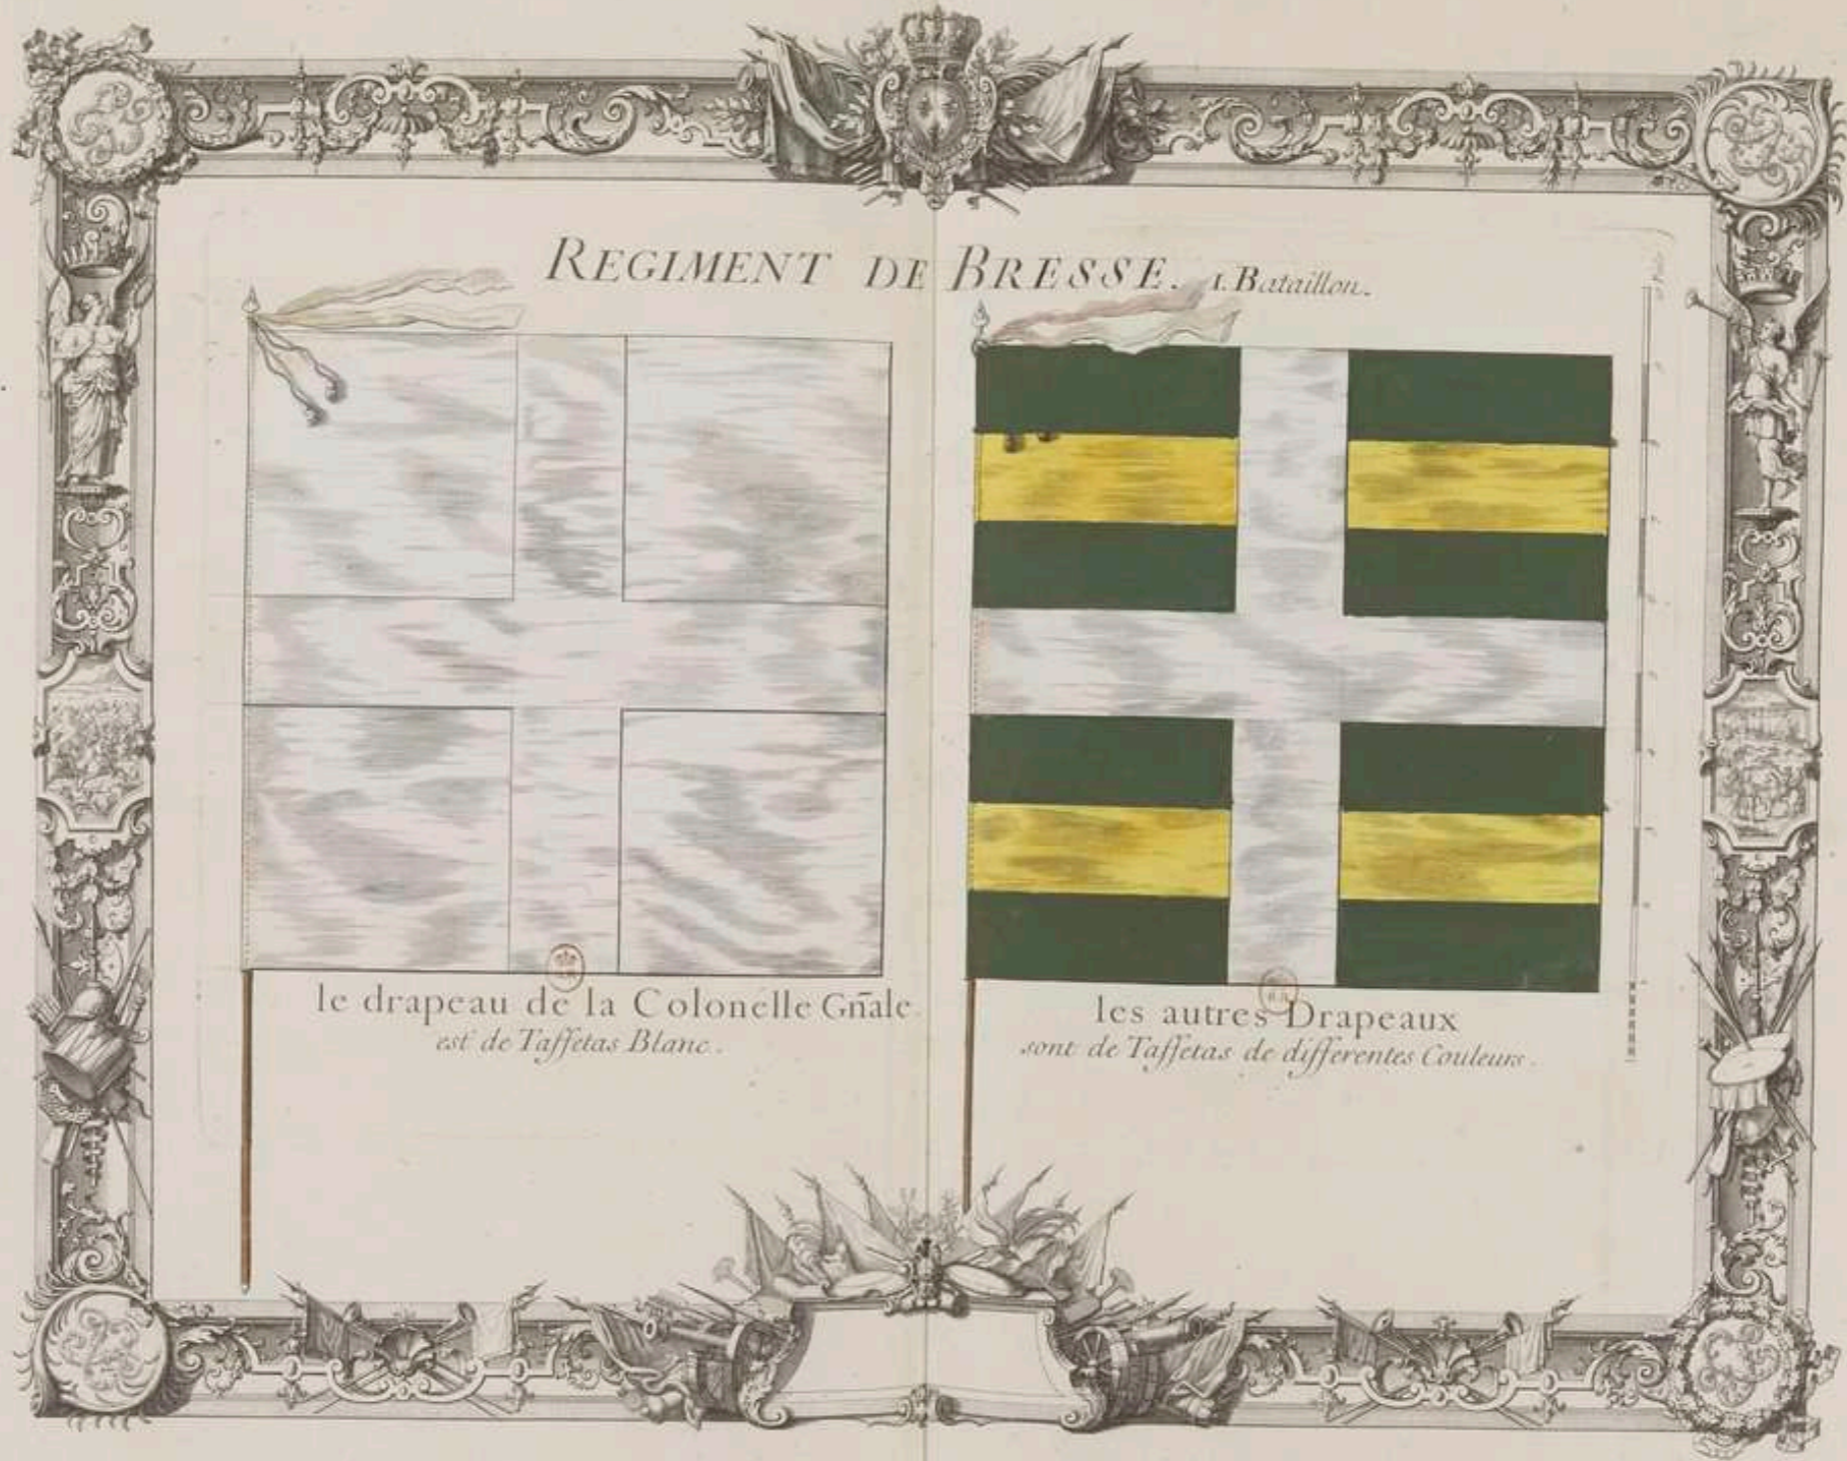 REGIMENT DE BRESSE. 1. Bataillon.
le drapeau de la Colonelle Gñale.
est de Taffetas Blanc.
les autres Drapeaux
sont de Taffetas de differentes Couleurs.